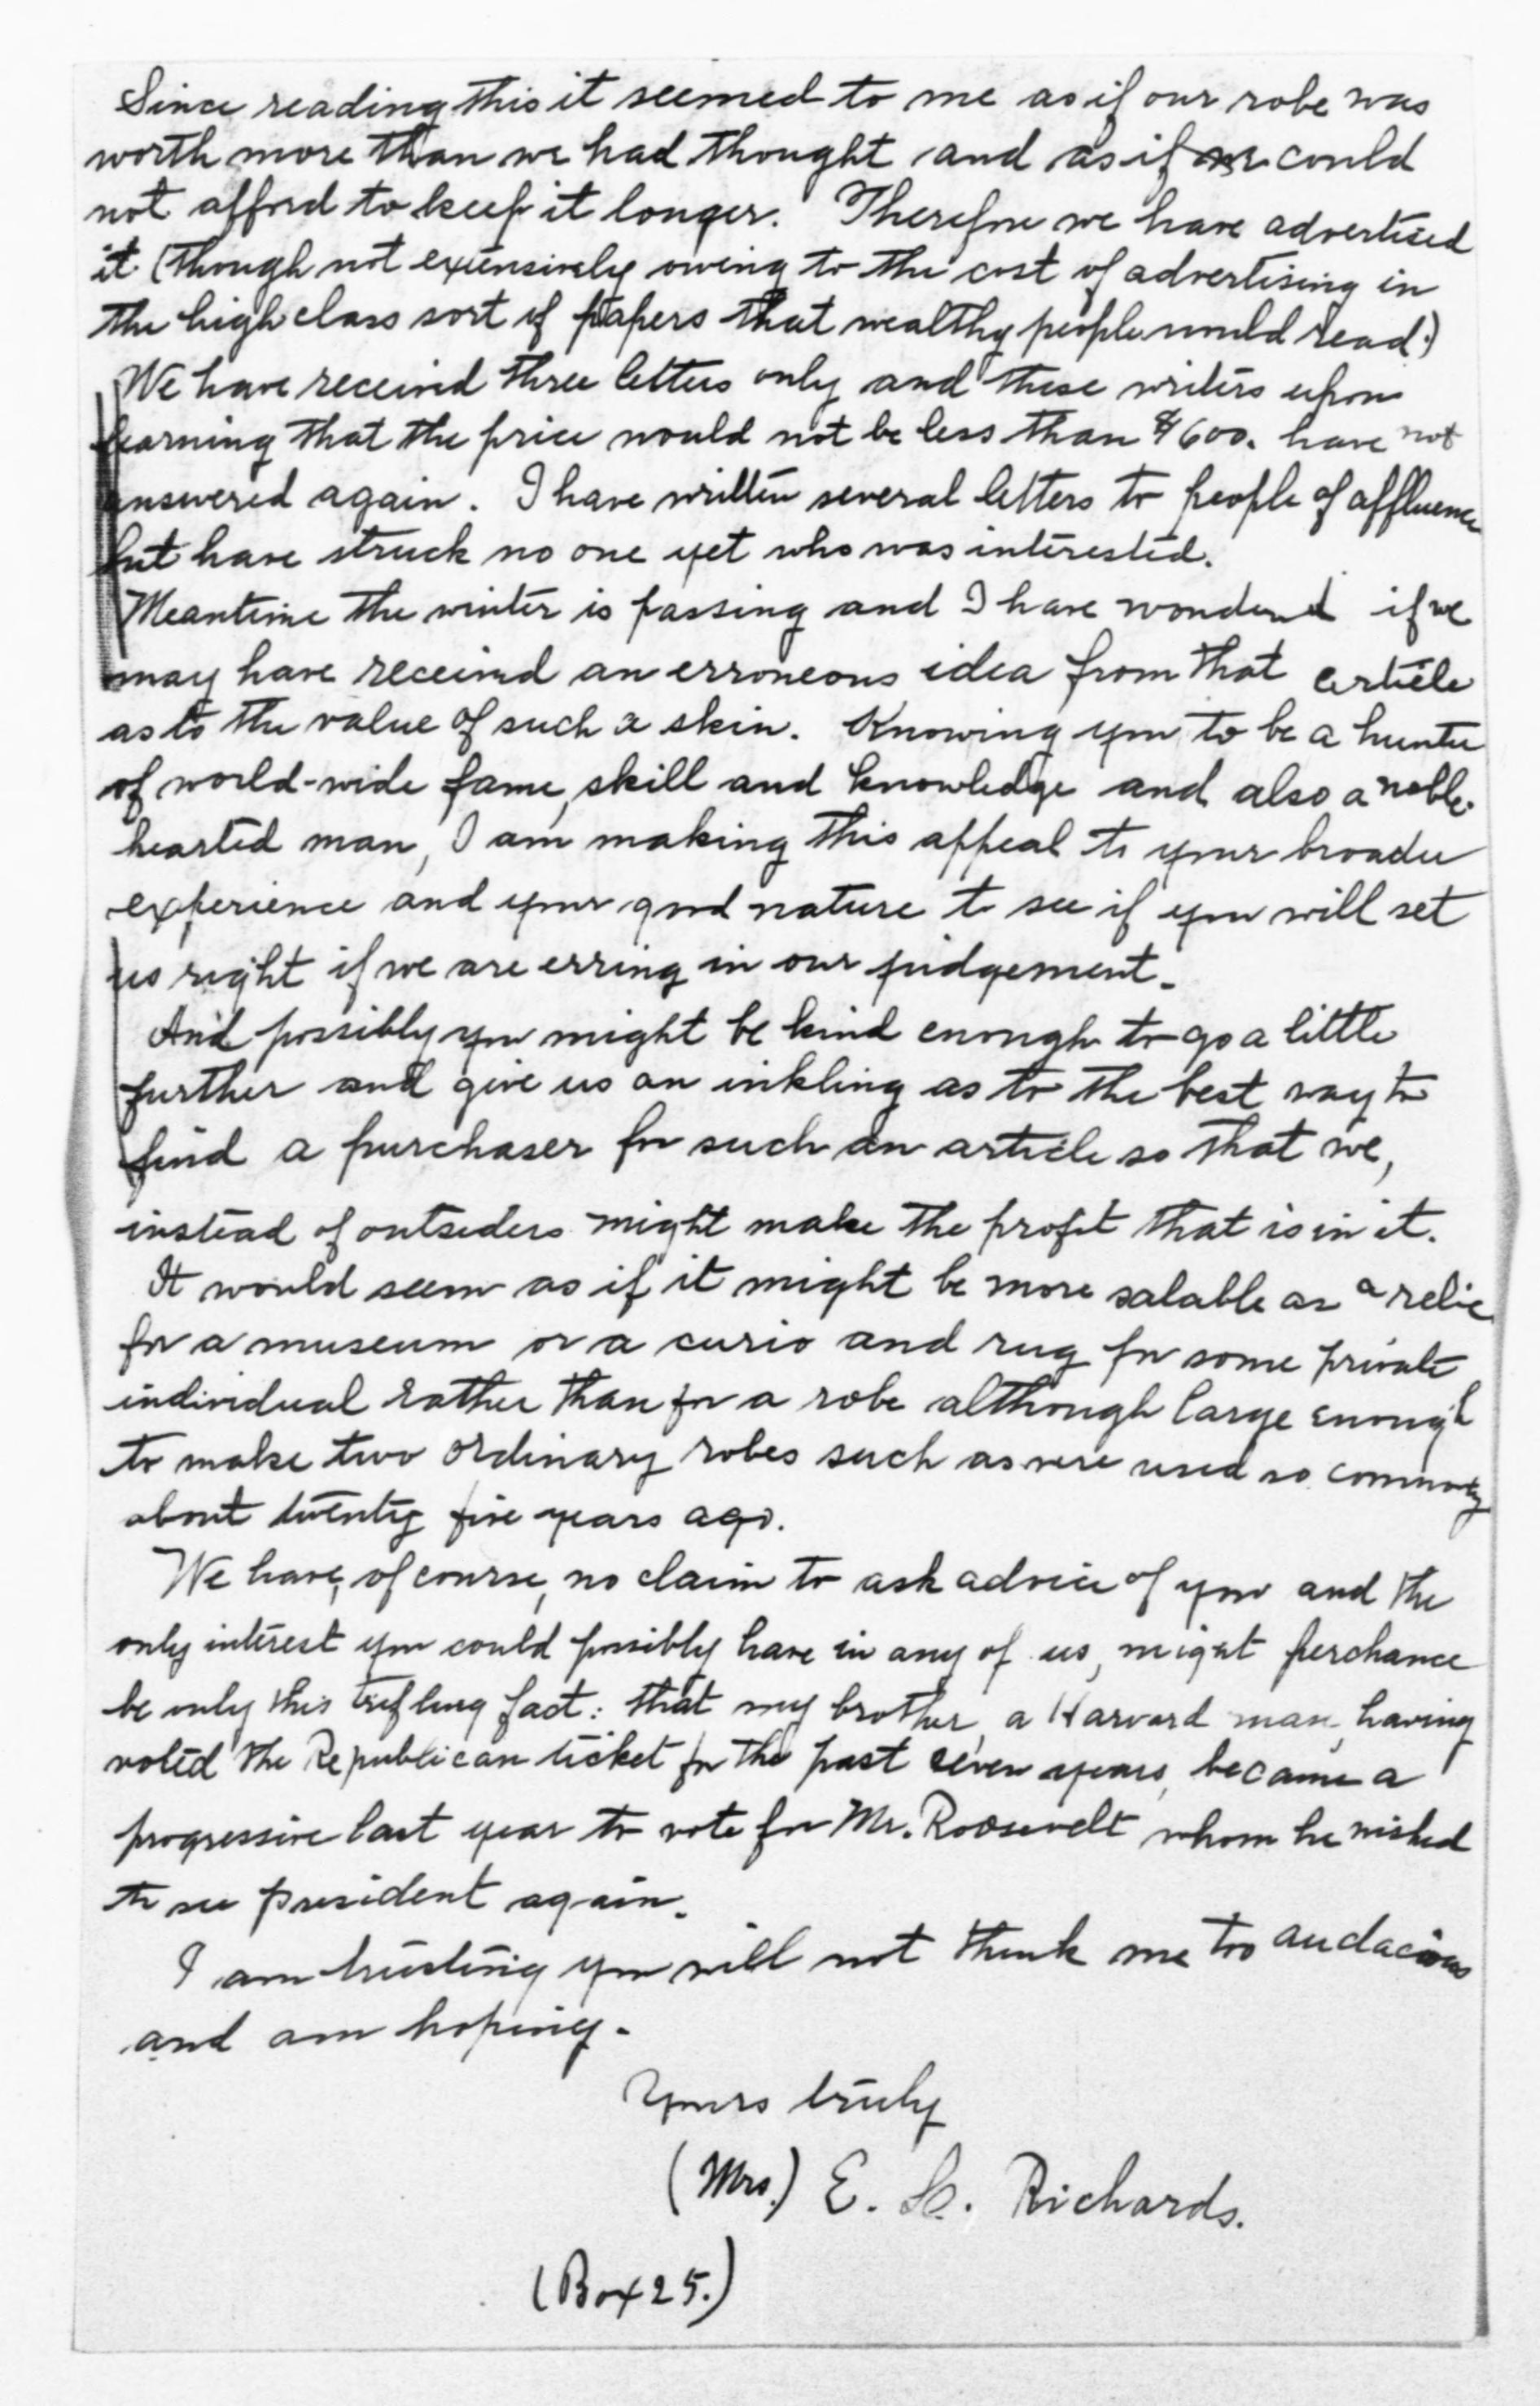 Since reading this it seemed to me as if our robe was
worth more than we had thought and as if we could
not afford to keep it longer. Therefore we have advertised
it (though not extensively owing to the cost of advertising in
the high class sort of papers that wealthy people would read.)
We have received three letters only and these writers upon
learning that the price would not be less than $600. have not
answered again. I have written several letters to people of affluence
but have struck no one yet who was interested.
Meantime the winter is passing and I have wondered if we
may have received an erroneous idea from that article
as to the value of such a skin. Knowing you to be a hunter
of world-wide fame, skill and knowledge and also a noble-
hearted man, I am making this appeal to your broader
experience and your good nature to see if you will set
us right if we are erring in our judgement.
And possibly you might be kind enough to go a little
further and give us an inkling as to the best way to
find a purchaser for such an article so that we,
instead of outsiders might make the profit that is in it.
It would seem as if it might be more salable as a relic
for a museum or a curio and rug for some private
individual rather than for a robe although large enough
to make two ordinary robes such as were used so commonly
about twenty five years ago.
We have, of course, no claim to ask advice of you and the
only interest you could possibly have in any of us, might perchance
be only this trifling fact: that my brother, a Harvard man, having
voted the Republican ticket for the past seven years, became a
progressive last year to vote for Mr. Roosevelt whom he wished
to see president again.
I am trusting you will not think me too audacious
and am hoping.
Yours truly
(Mrs.) E. Richards.
(Box 25.)